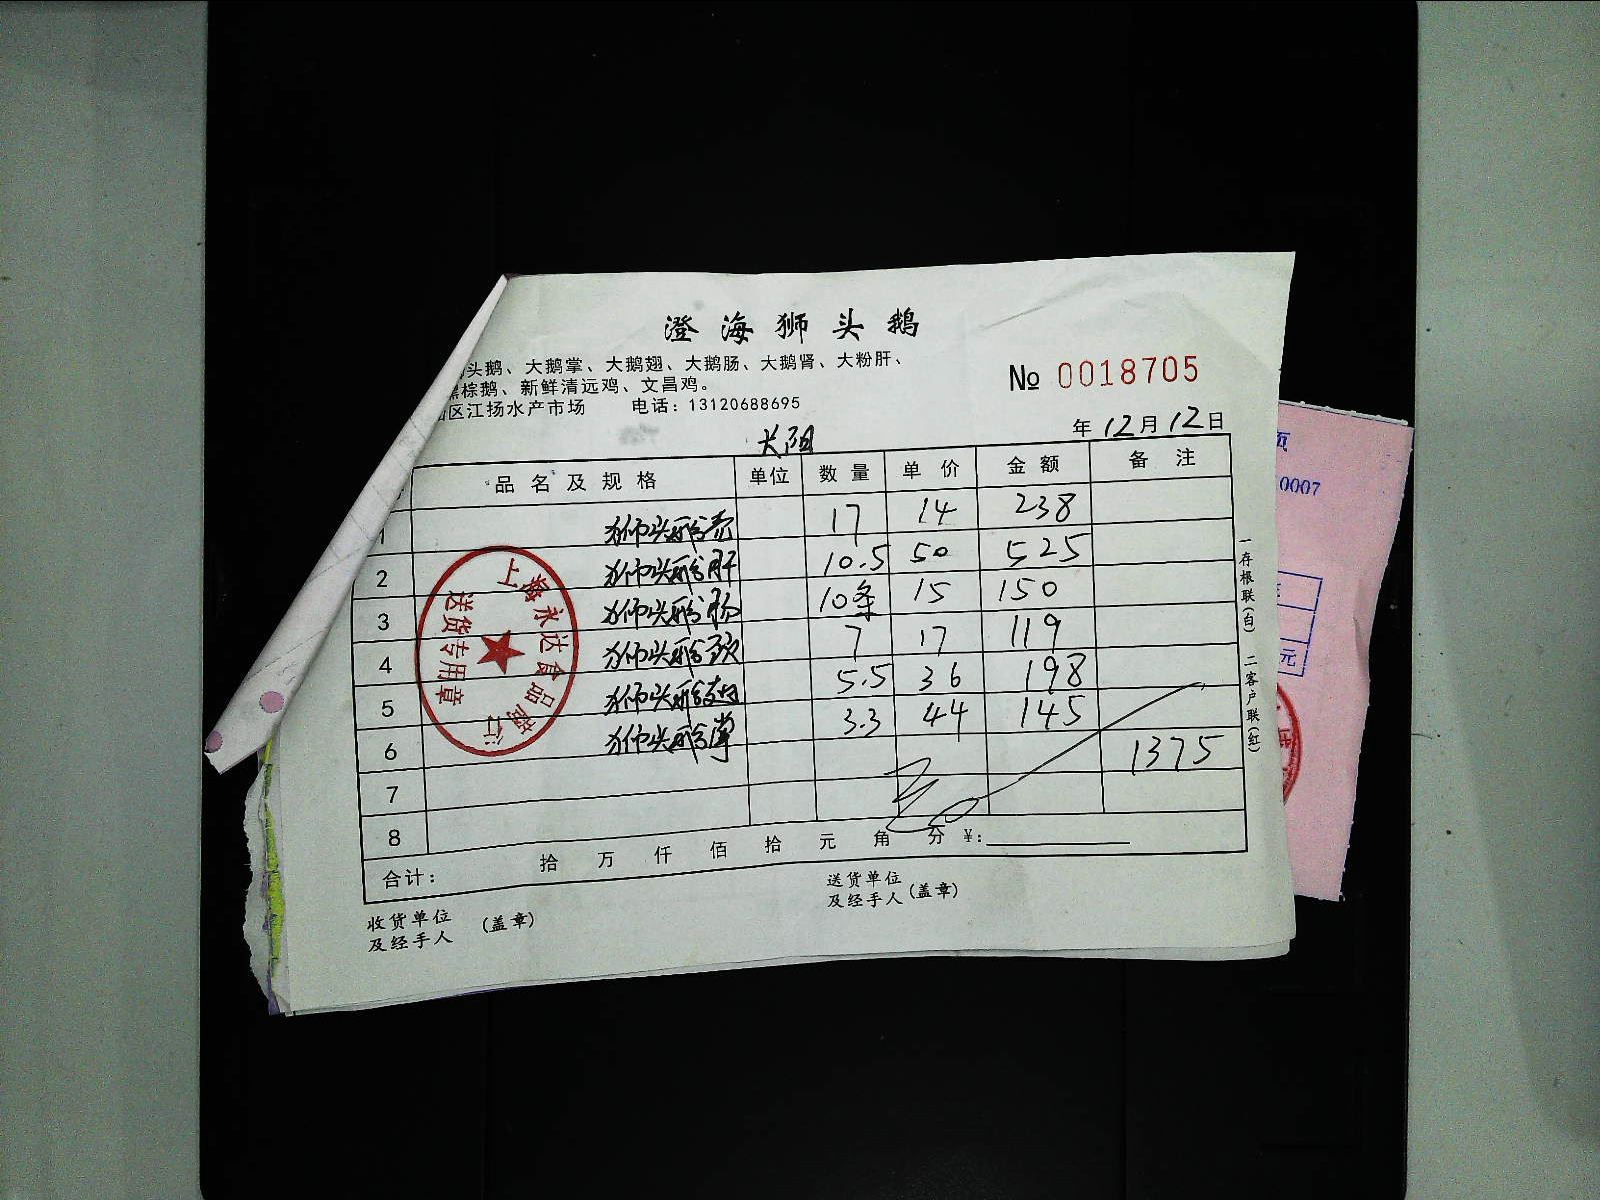 澄海狮头鹅
头鹅、大鹅掌、大鹅翅、大鹅肠、大鹅肾、大粉肝、
棕鹅、新鲜清远鸡、文昌鸡。
区江扬水产市场 电话：13120688695
№ 0018705
年 12 月 12 日
大阳
品名及规格 单位 数量 单价 金额 备注
1 狮头鹅壳 17 14 238
2 狮头鹅肝 10.5 50 525
3 狮头鹅肠 10条 15 150
4 狮头鹅 7 17 119
5 狮头鹅翅 5.5 36 198
6 狮头鹅掌 3.3 44 145
1375
7
8
合计： 拾 万 仟 佰 拾 元 角 分 ¥：
收货单位
及经手人 (盖章)
送货单位
及经手人 (盖章)
一存根联(白) 二客户联(红)
上海永达食品商行
送货专用章
页
0007
元